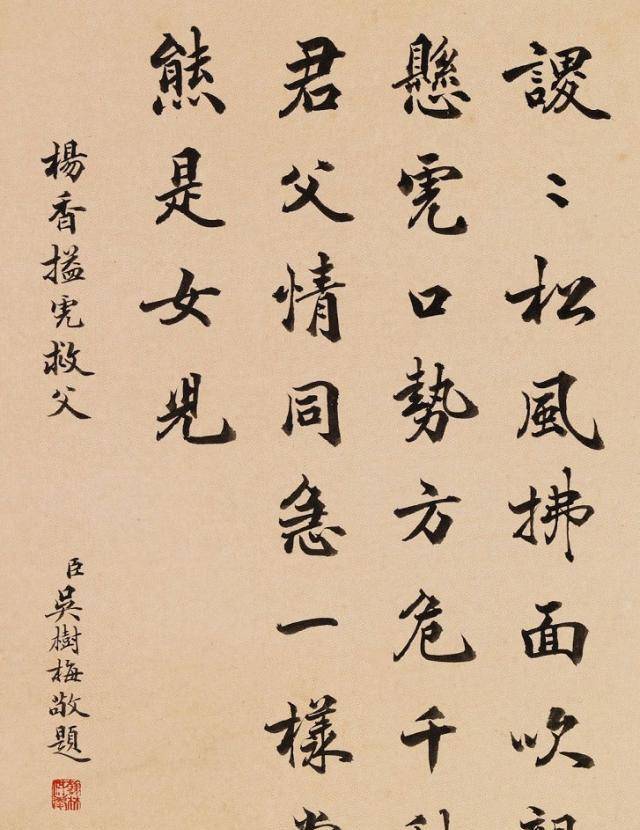 謖〻松風拂面吹
懸虎口勢方危千
君父情同急一樣
熊是女兒
楊香搤虎救父
臣吳樹梅敬題